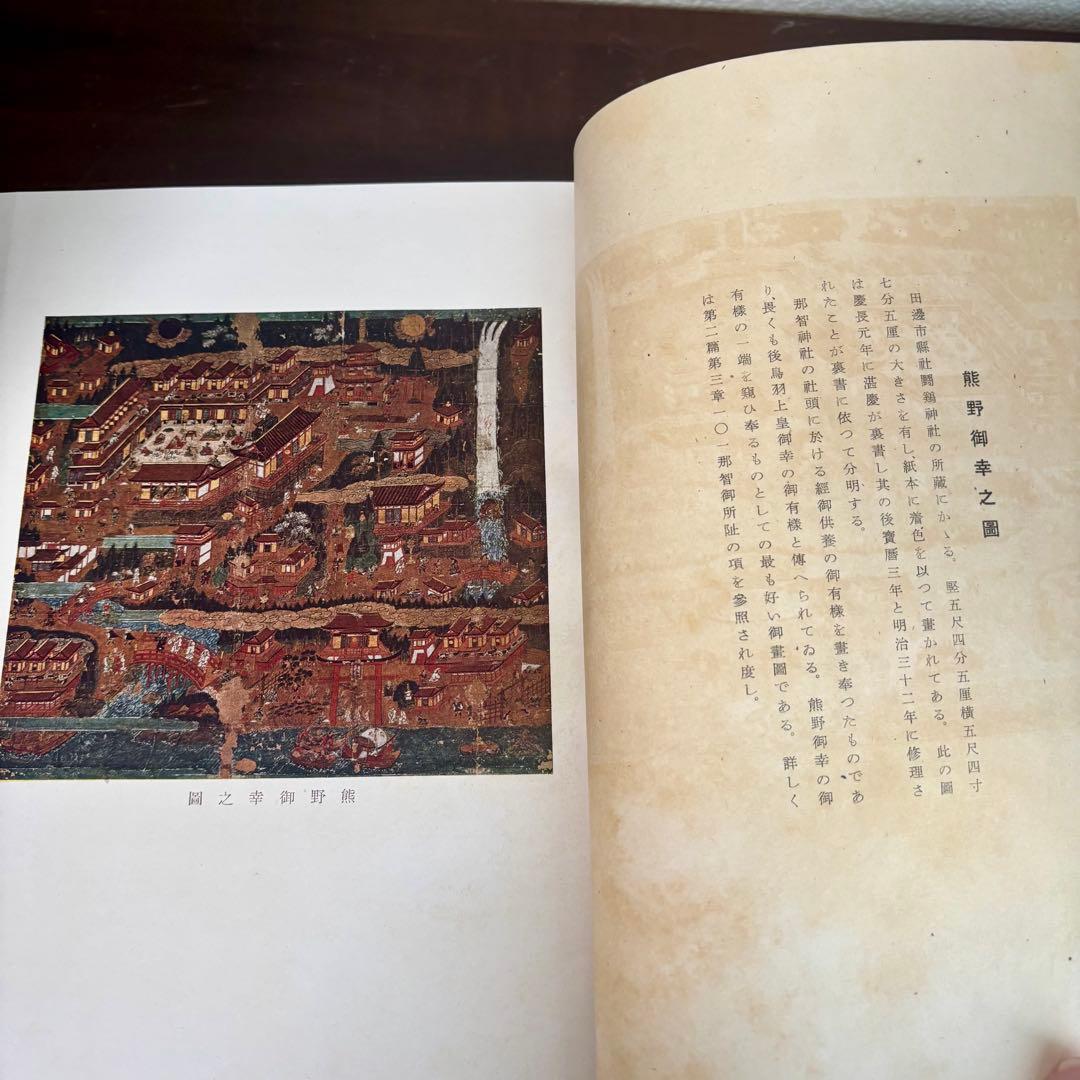 熊野御幸之圖
田邊市縣社鬪鷄神社の所藏にかゝる。竪五尺四分五厘横五尺四寸
七分五厘の大きさを有し、紙本に着色を以つて畫かれてある。此の圖
は慶長元年に湛慶が裏書し其の後寶曆三年と明治三十二年に修理さ
れたことが裏書に依つて分明する。
那智神社の社頭に於ける經御供養の御有樣を畫き奉つたものであ
り、畏くも後鳥羽上皇御幸の御有樣と傳へられてゐる。熊野御幸の御
有樣の一端を窺ひ奉るものとしての最も好い御畫圖である。詳しく
は第二篇第三章一〇一那智御所阯の項を參照され度し。
圖之幸御野熊